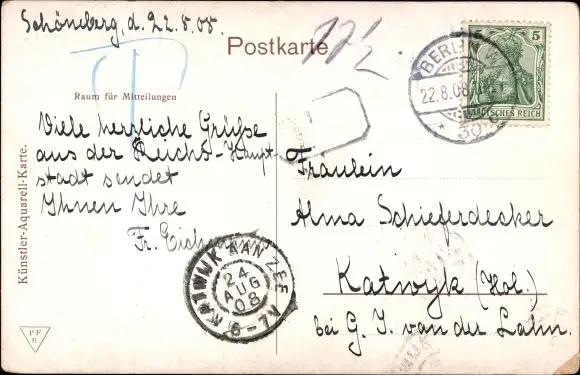 Schöneberg, d. 22.8.08.
Postkarte
12½
5 5
DEUTSCHES REICH
BERLIN W
22.8.08
* 30
Raum für Mitteilungen
Viele herzliche Grüße
aus der Reichs-Haupt-
stadt sendet
Ihnen Ihre
Fr.
Fräulein
Alma Schieferdecker
Katwyk (Hol.)
bei G. J. van der Lahn.
KATWIJK AAN ZEE
24
AUG
08
6-7N
Künstler-Aquarell-Karte.
PF
B